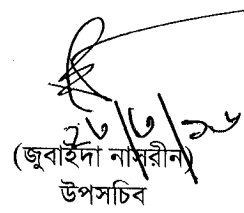 ২৩/৩/১৬
(জুবাইদা নাসরীন)
উপসচিব